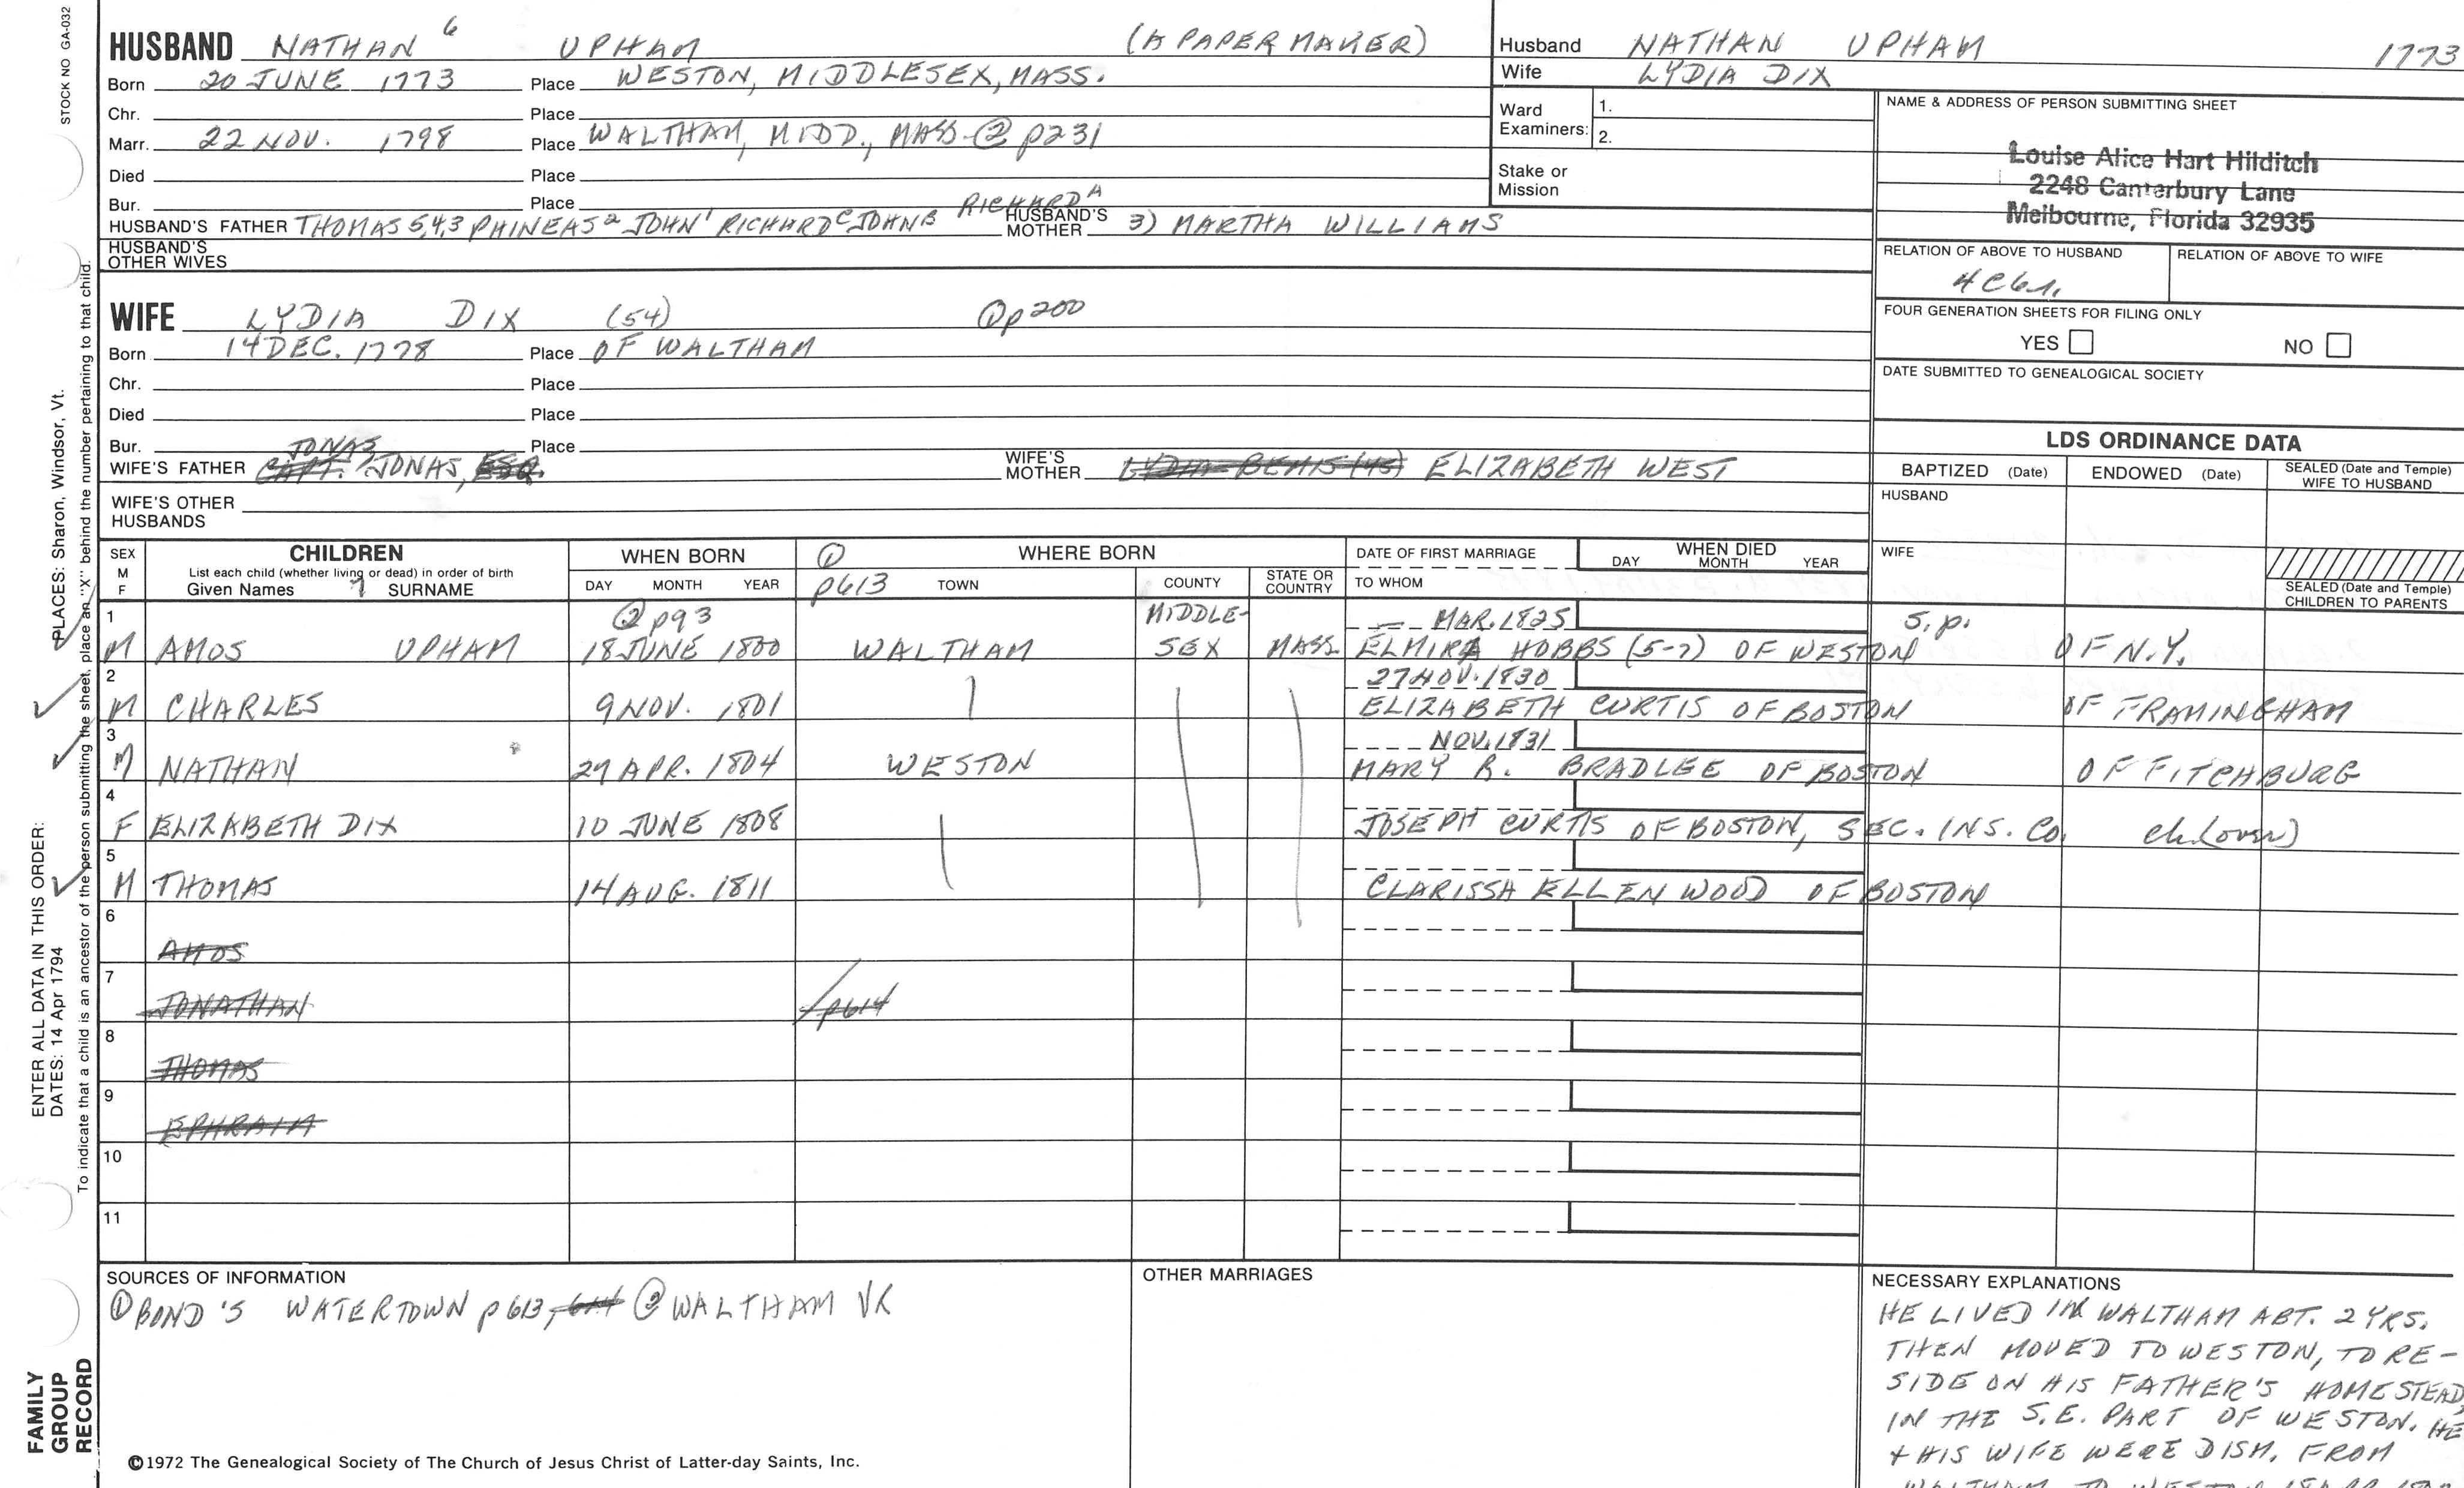 STOCK NO GA-032
HUSBAND NATHAN 6 UPHAM (A PAPER MAKER)
Born 20 JUNE 1773 Place WESTON, MIDDLESEX, MASS.
Chr. Place
Marr. 22 NOV. 1798 Place WALTHAM, MIDD., MASS ② p231
Died Place
Bur. Place
HUSBAND'S FATHER THOMAS 5,4,3 PHINEAS 2 JOHN 1 RICHARD C JOHN B RICHARD A HUSBAND'S MOTHER 3) MARTHA WILLIAMS
HUSBAND'S OTHER WIVES
WIFE LYDIA DIX (54) ① p200
Born 14 DEC. 1778 Place OF WALTHAM
Chr. Place
Died Place
Bur. Place
JONAS
WIFE'S FATHER CAPT. JONAS, ESQ. WIFE'S MOTHER LYDIA BEMIS (45) ELIZABETH WEST
WIFE'S OTHER HUSBANDS
Husband NATHAN UPHAM 1773
Wife LYDIA DIX
Ward Examiners: 1.
2.
Stake or Mission
NAME & ADDRESS OF PERSON SUBMITTING SHEET
Louise Alice Hart Hilditch
2248 Canterbury Lane
Melbourne, Florida 32935
RELATION OF ABOVE TO HUSBAND RELATION OF ABOVE TO WIFE
4C6r.
FOUR GENERATION SHEETS FOR FILING ONLY
YES NO
DATE SUBMITTED TO GENEALOGICAL SOCIETY
LDS ORDINANCE DATA
BAPTIZED (Date) ENDOWED (Date) SEALED (Date and Temple) WIFE TO HUSBAND
HUSBAND
WIFE
SEALED (Date and Temple) CHILDREN TO PARENTS
SEX M F
CHILDREN
List each child (whether living or dead) in order of birth
Given Names 7 SURNAME
WHEN BORN
DAY MONTH YEAR
① p613
WHERE BORN
TOWN COUNTY STATE OR COUNTRY
DATE OF FIRST MARRIAGE
TO WHOM
WHEN DIED
DAY MONTH YEAR
1 ② p93 MIDDLE- MAR. 1825 S.P.
M AMOS UPHAM 18 JUNE 1800 WALTHAM SEX MASS. ELMIRA HOBBS (5-7) OF WESTON OF N.Y.
2 27 NOV. 1830
M CHARLES 9 NOV. 1801 ELIZABETH CURTIS OF BOSTON OF FRAMINGHAM
3 NOV. 1831
M NATHAN 29 APR. 1804 WESTON MARY R. BRADLEE OF BOSTON OF FITCHBURG
4
F ELIZABETH DIX 10 JUNE 1808 JOSEPH CURTIS OF BOSTON, SEC. INS. CO. ch. (over)
5
M THOMAS 14 AUG. 1811 CLARISSA ELLENWOOD OF BOSTON
6
AMOS
7
JONATHAN p614
8
THOMAS
9
EPHRAIM
10
11
SOURCES OF INFORMATION
① BOND'S WATERTOWN p613, 614 ② WALTHAM VR
OTHER MARRIAGES
NECESSARY EXPLANATIONS
HE LIVED IN WALTHAM ABT. 2 YRS.
THEN MOVED TO WESTON, TO RE-
SIDE ON HIS FATHER'S HOMESTEAD,
IN THE S.E. PART OF WESTON. HE
+ HIS WIFE WERE DISM. FROM
WALTHAM TO WESTON
©1972 The Genealogical Society of The Church of Jesus Christ of Latter-day Saints, Inc.
ENTER ALL DATA IN THIS ORDER:
DATES: 14 Apr 1794 PLACES: Sharon, Windsor, Vt.
To indicate that a child is an ancestor of the person submitting the sheet, place an "X" behind the number pertaining to that child.
FAMILY
GROUP
RECORD